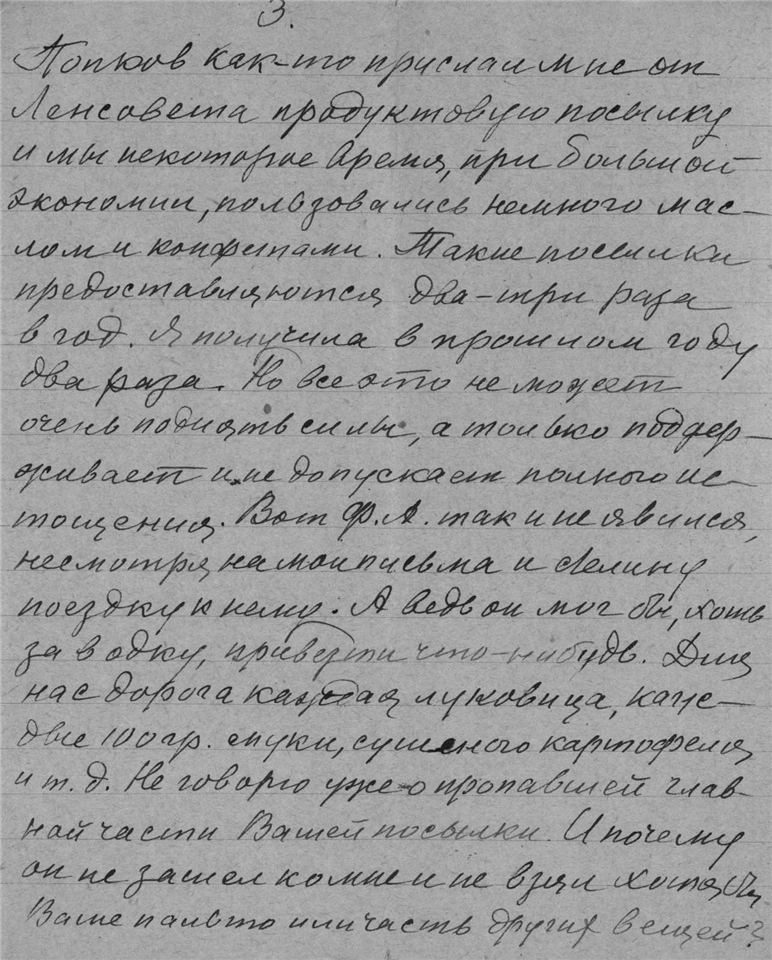 3.
Попков как-то прислал мне от
Ленсовета продуктовую посылку
и мы некоторое время, при большой
экономии, пользовались немного мас-
лом и конфетами. Такие посылки
предоставляются два-три раза
в год. Я получила в прошлом году
два раза. Но все это не может
очень поднять силы, а только поддер-
живает и не допускает полного ис-
тощения. Вот Ф.А. так и не явился,
несмотря на мои письма и
поездку к нему. А ведь он мог бы, хоть
за водку, привезти что-нибудь. Для
нас дорога каждая луковица, каж-
дые 100 гр. муки, сушеного картофеля
и т.д. Не говорю уже о пропавшей глав-
ной части Вашей посылки. И почему
он не зашел ко мне и не взял хотя бы
Ваше пальто или часть других вещей?